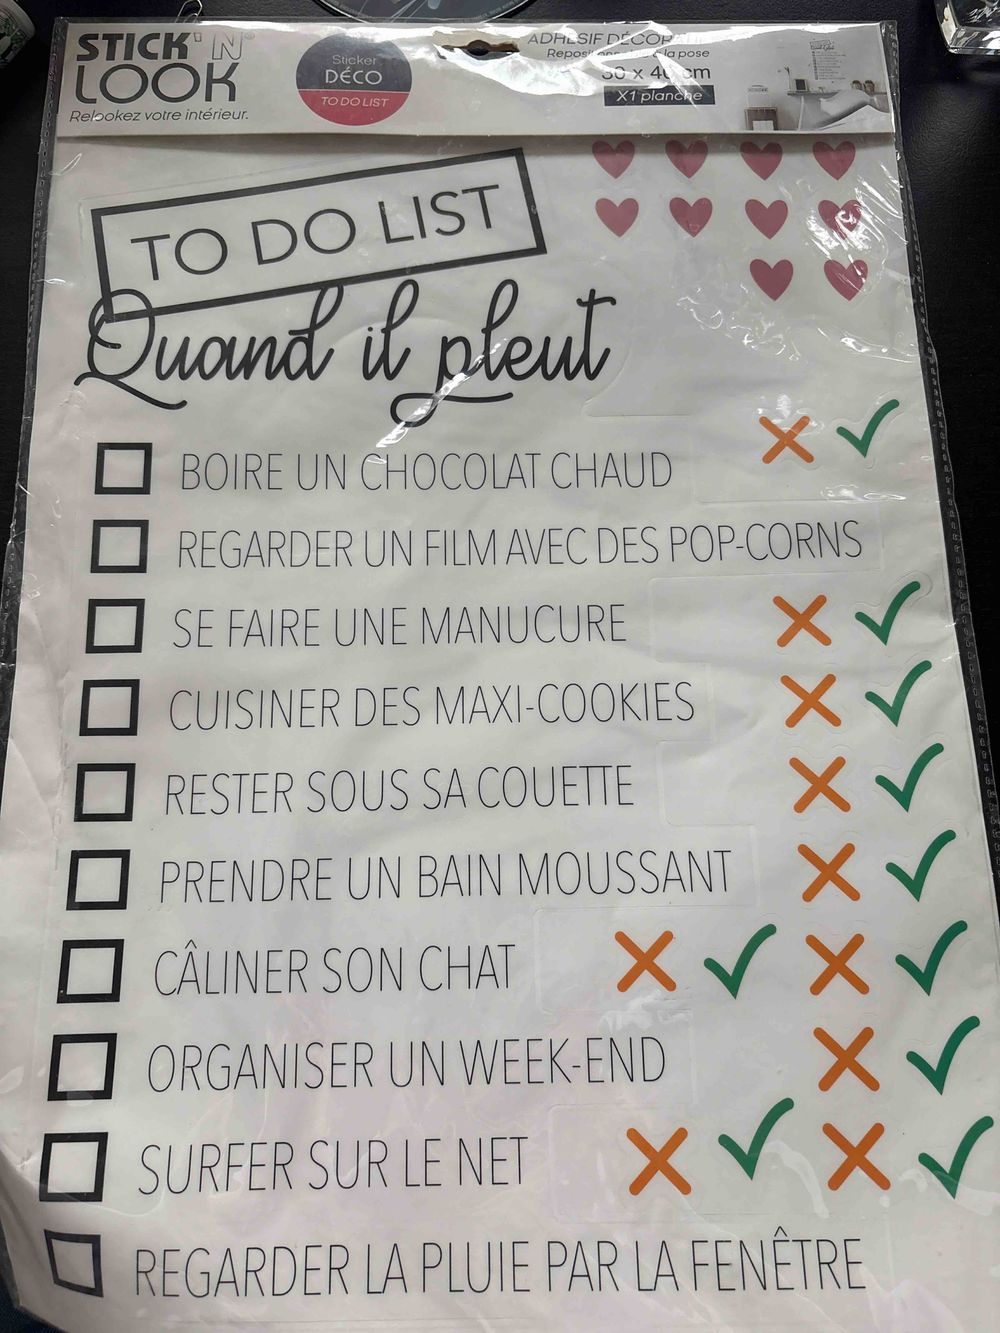 STICK'N'
LOOK
Relookez votre intérieur.
Sticker
DÉCO
TO DO LIST
ADHÉSIF
à la pose
30 x 40 cm
X1 planche
TO DO LIST
Quand il pleut
BOIRE UN CHOCOLAT CHAUD
REGARDER UN FILM AVEC DES POP-CORNS
SE FAIRE UNE MANUCURE
CUISINER DES MAXI-COOKIES
RESTER SOUS SA COUETTE
PRENDRE UN BAIN MOUSSANT
CÂLINER SON CHAT
ORGANISER UN WEEK-END
SURFER SUR LE NET
REGARDER LA PLUIE PAR LA FENÊTRE